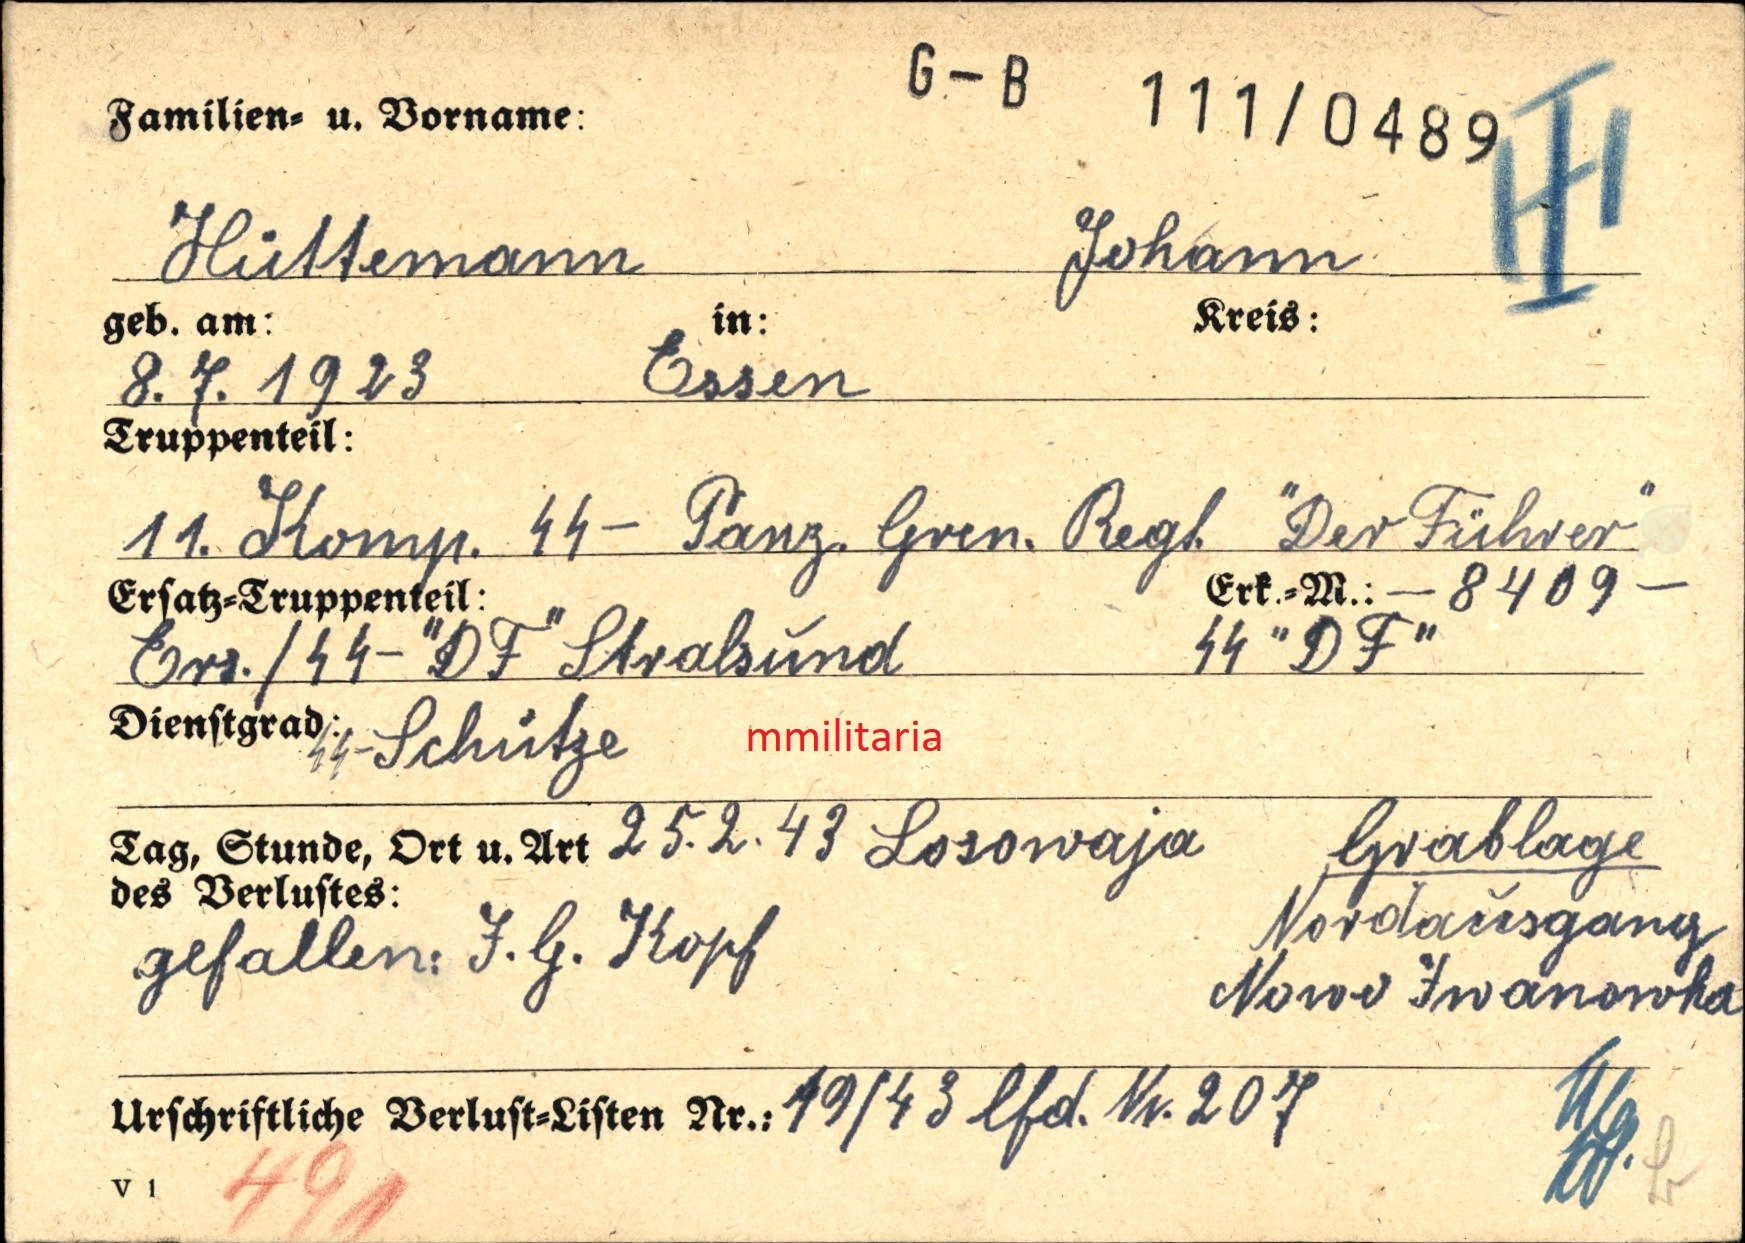 G-B 111/0489
Familien- u. Vorname:
Hüttemann Johann
geb. am: in: Kreis:
8.7.1923 Essen
Truppenteil:
11. Komp. SS- Panz. Gren. Regt. "Der Führer"
Ersatz-Truppenteil: Erk.-M.: -8409-
Ers./SS-"DF" Stralsund SS "DF"
Dienstgrad: SS-Schütze
mmilitaria
Tag, Stunde, Ort u. Art 25.2.43 Losowaja Grablage
des Verlustes: Nordausgang
gefallen: I.G. Kopf Nowo Iwanowka
Urschriftliche Verlust-Listen Nr.: 19/43 lfd. Nr. 207
V 1 491